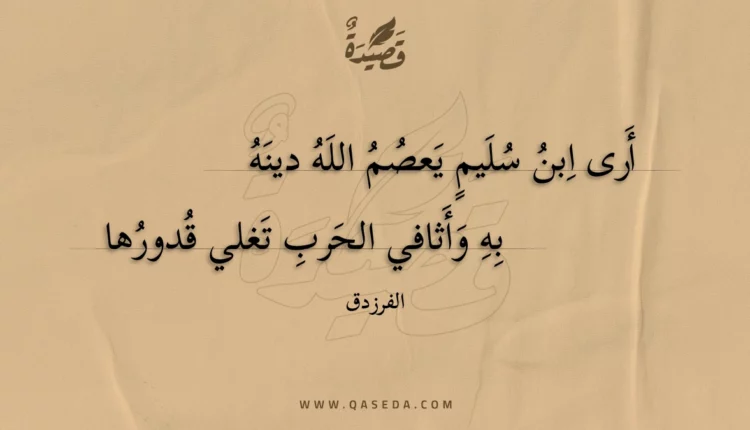 قَصِيْدَةٌ
أَرى اِبنُ سُلَيمٍ يَعصُمُ اللَهُ دينَهُ
بِهِ وَأَثافي الحَربِ تَغلي قُدورُها
الفرزدق
WWW.QASEDA.COM